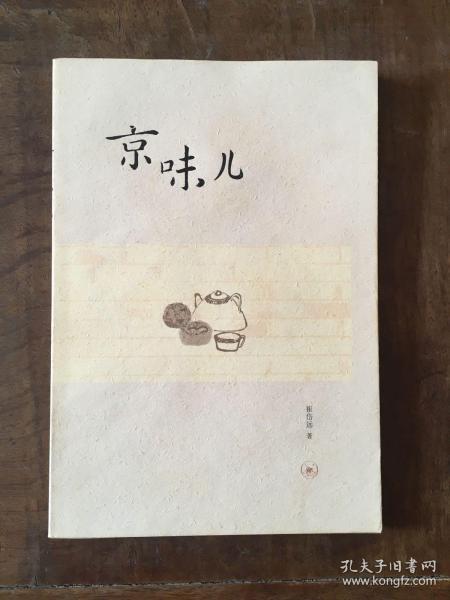 京味儿
崔岱远 著
孔夫子旧书网
www.kongfz.com